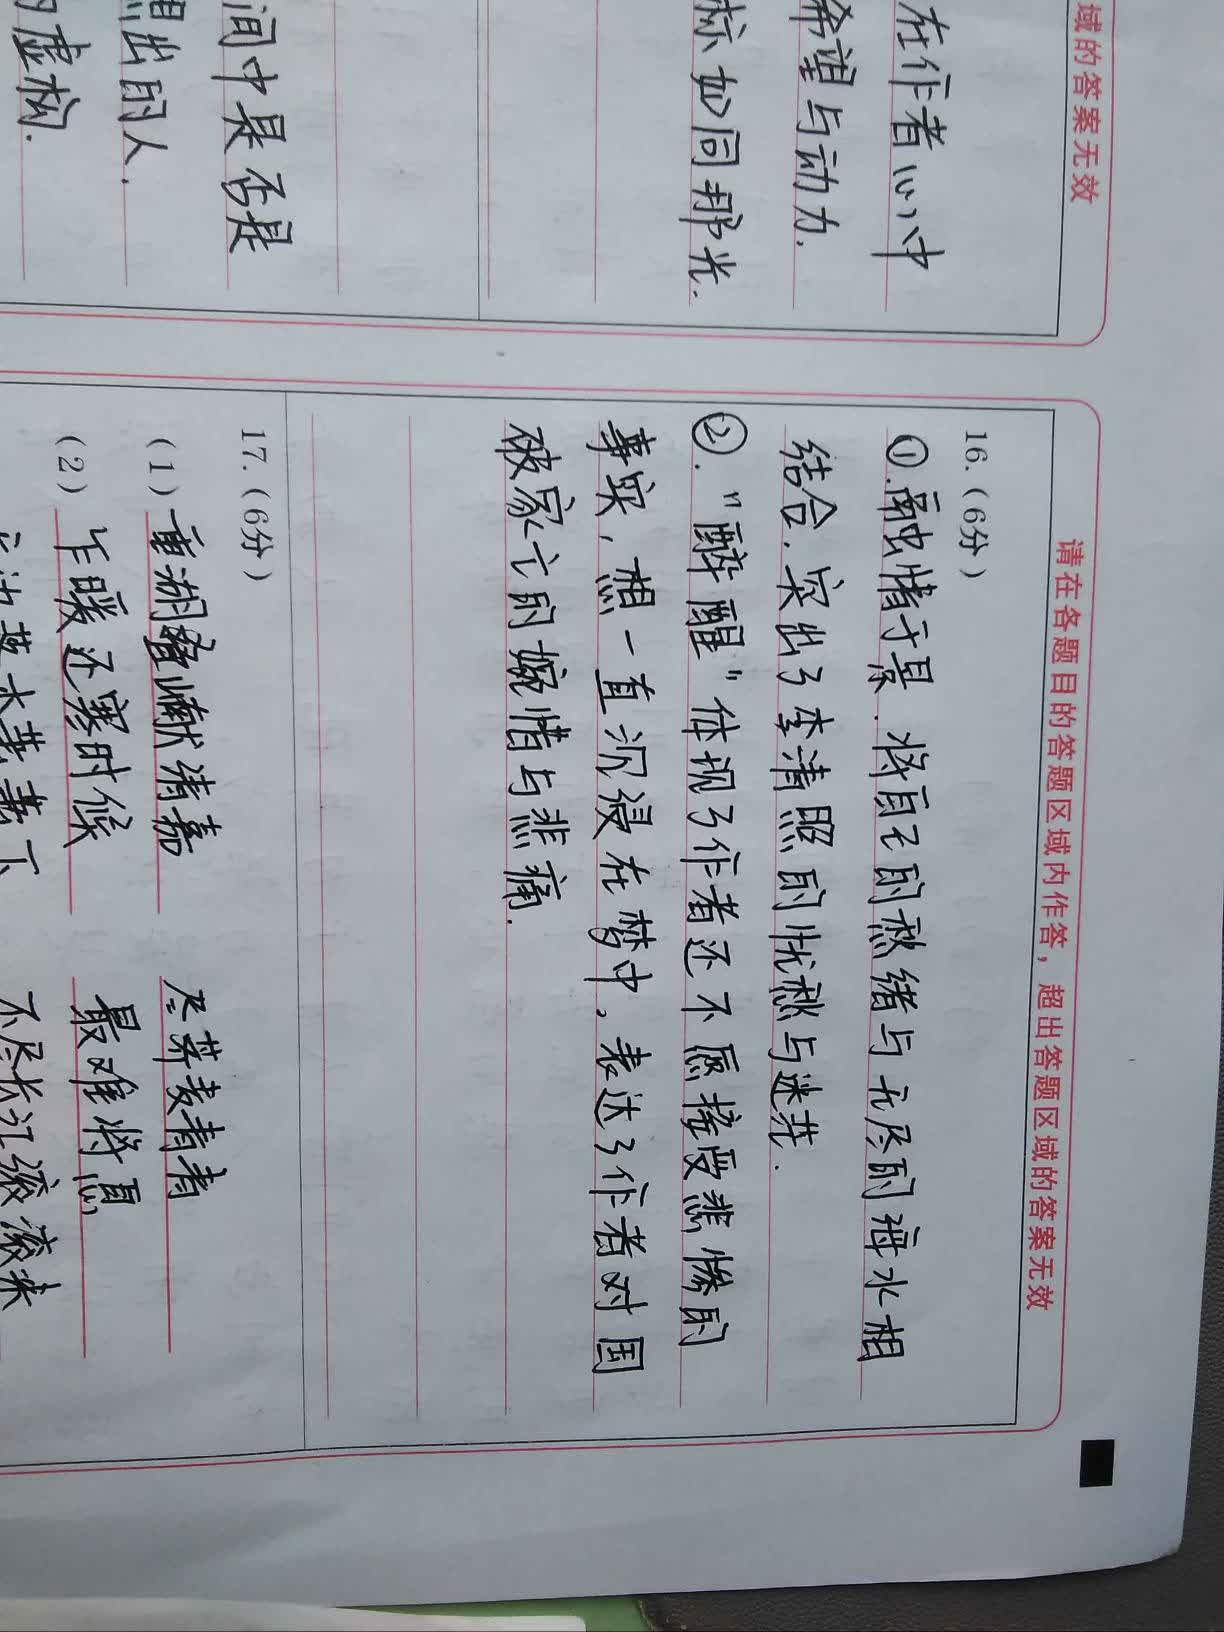 域的答案无效
在作者心中
希望与动力.
标如同那光.
间中是否是
想出的人.
虚构.
请在各题目的答题区域内作答，超出答题区域的答案无效
16.(6分)
①.融情于景.将自己的愁绪与无尽的海水相
结合.突出了李清照的忧愁与迷茫.
②."醉醒"体现了作者还不愿接受悲惨的
事实,想一直沉浸在梦中,表达了作者对国
破家亡的婉惜与悲痛.
17.(6分)
(1)重湖叠巘清嘉 尽荠麦青青
(2)乍暖还寒时候 最难将息
无边落木萧萧下 不尽长江滚滚来